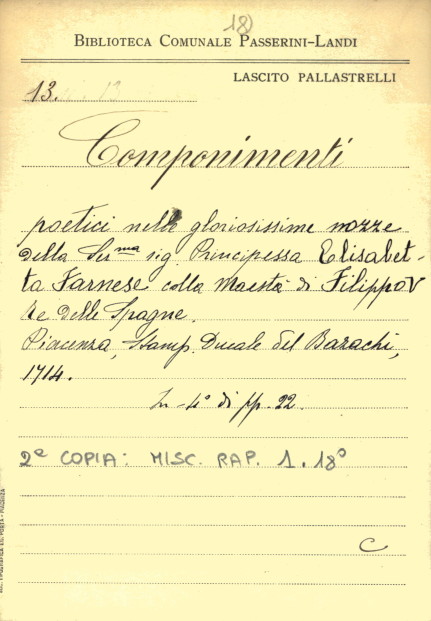 18)
BIBLIOTECA COMUNALE PASSERINI-LANDI
LASCITO PALLASTRELLI
13. 13
Componimenti
poetici nelle gloriosissime nozze
della Ser.ma sig. Principessa Elisabet-
ta Farnese colla Maestà di Filippo V
re delle Spagne.
Piacenza, Stamp. Ducale del Bazachi,
1714.
In-4° di pp. 22.
2ª COPIA: MISC. RAP. 1.18°
C